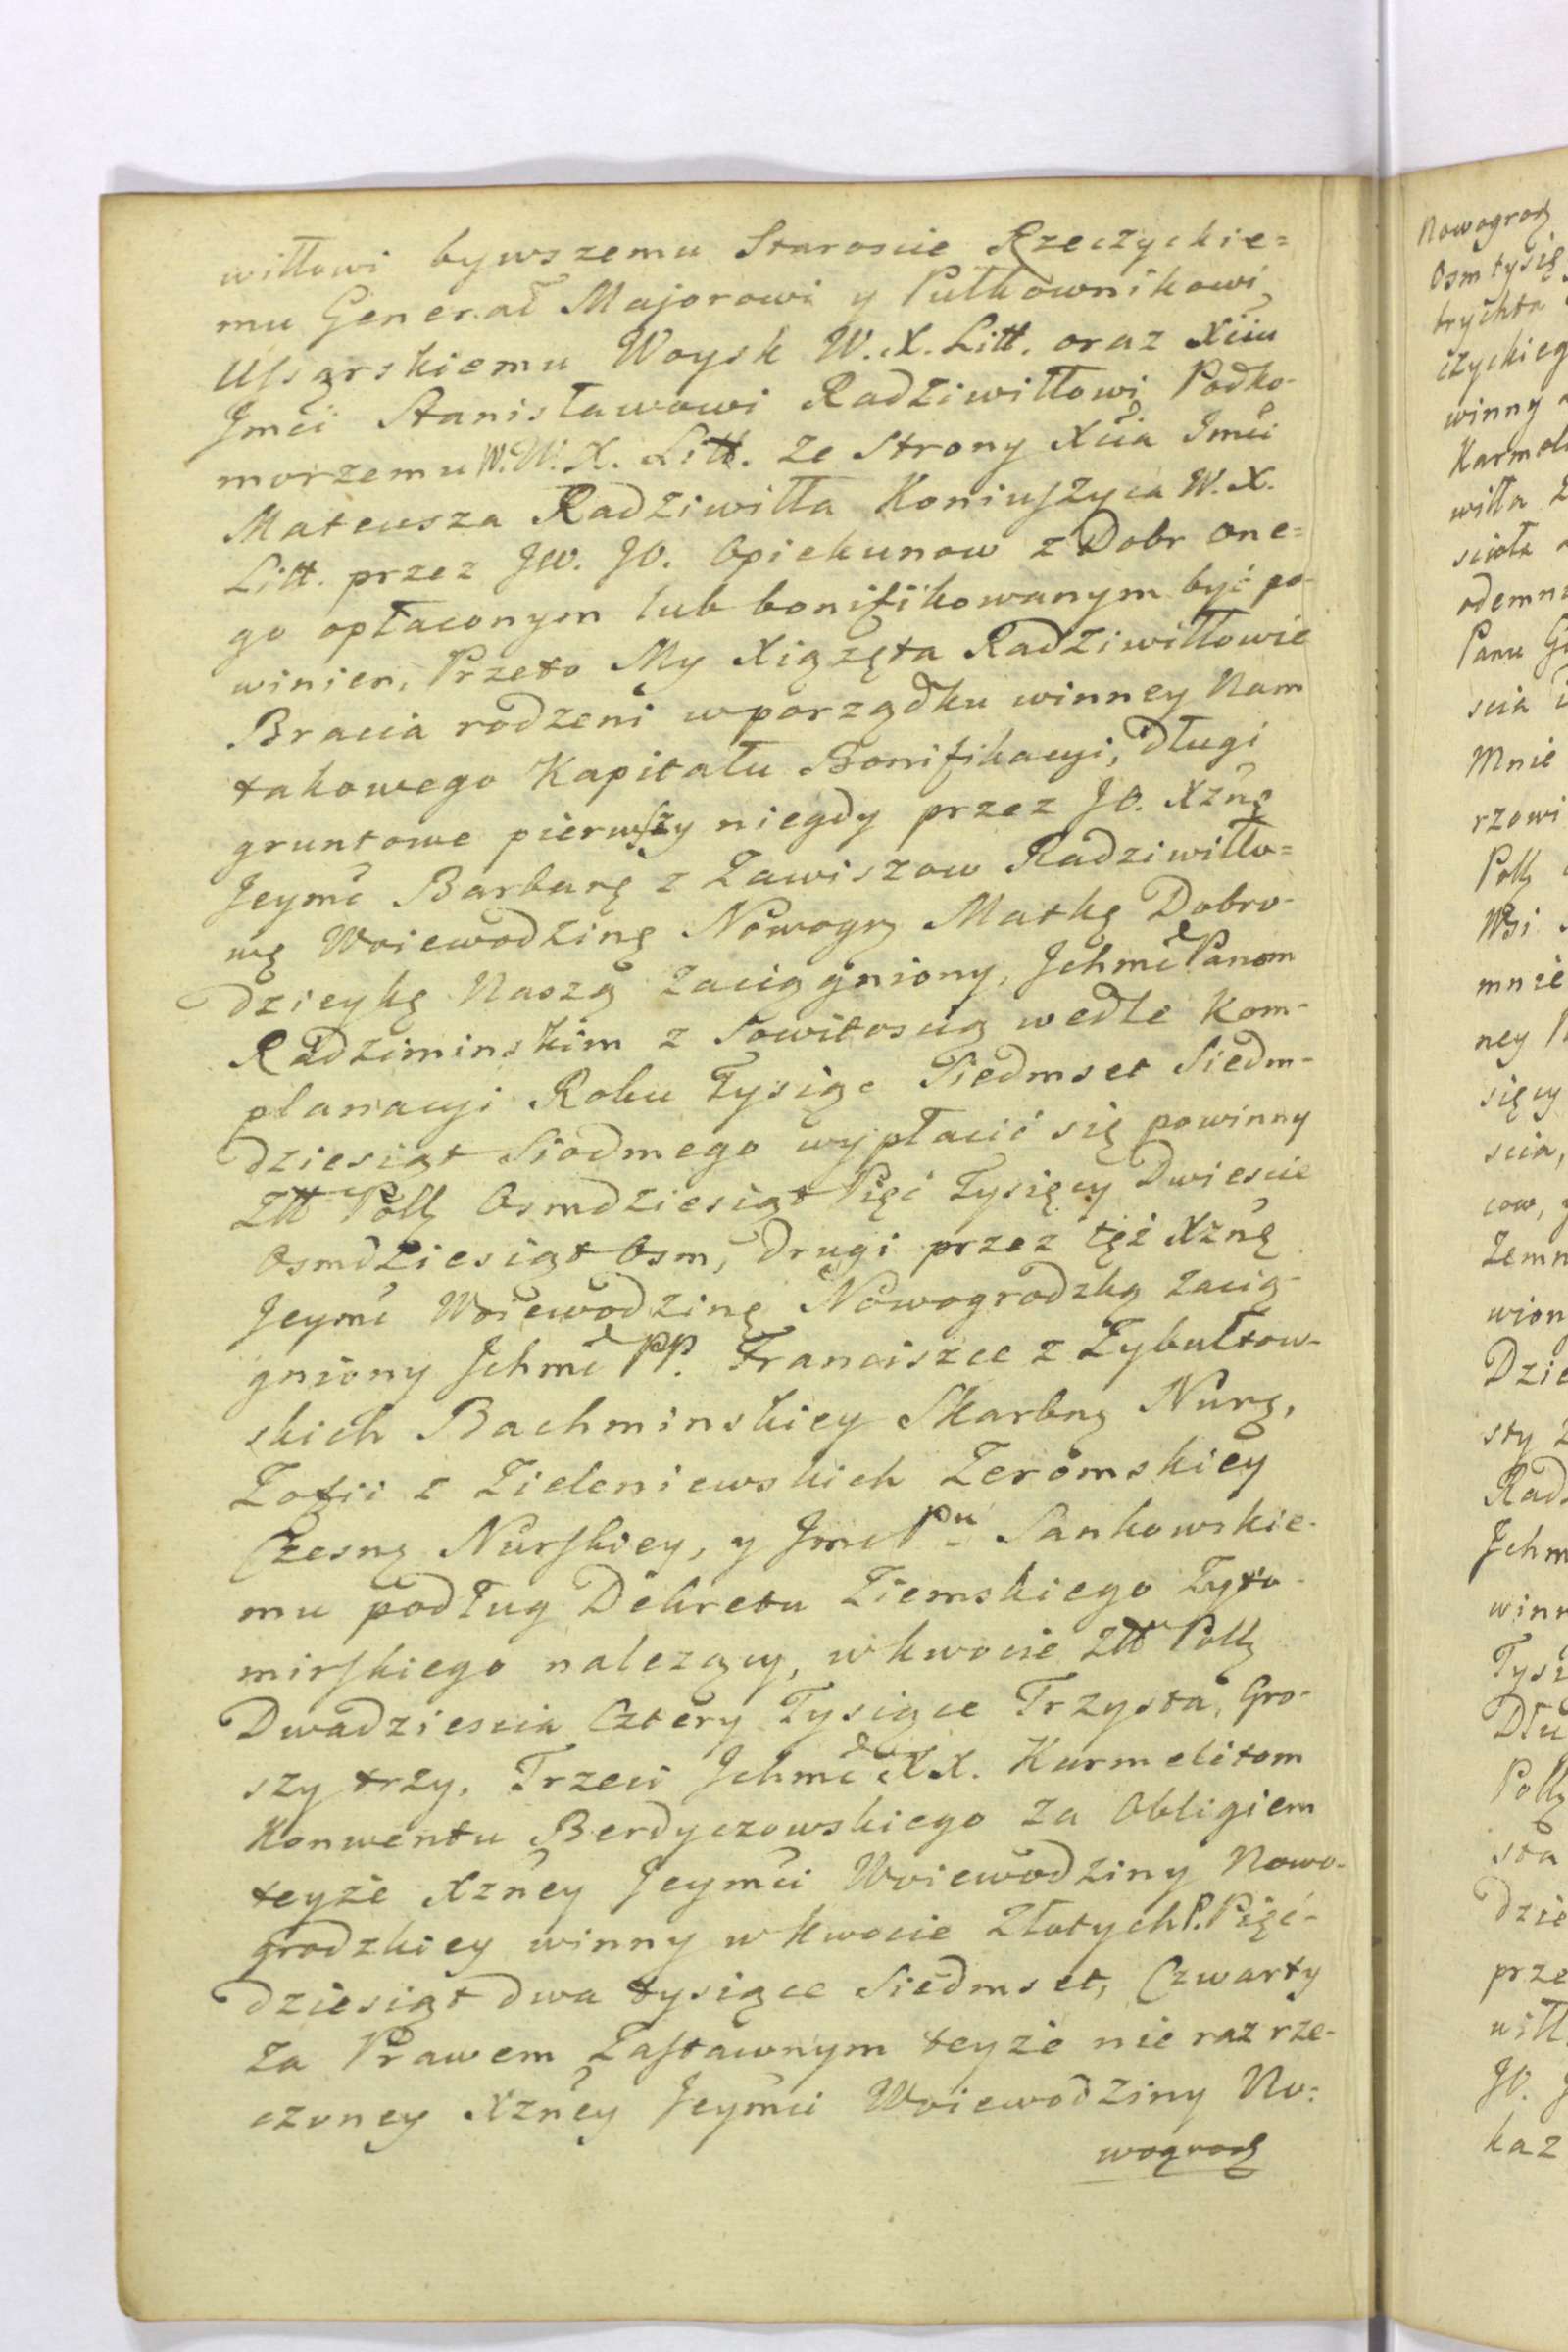 wiłłowi bywszemu Staroscie Rzeczyckie=
mu Generał Majorowi y Pułkownikowi
Ussarskiemu Woysk W. X. Litt. oraz Xciu
Jmci Stanisławowi Radziwiłłowi Podko-
morzemu W. W. X. Litt. ze Strony Xcia Jmci
Mateusza Radziwiłła Koniuszyca W. X.
Litt. przez JW. JO. Opiekunow z Dobr one=
go opłaconym lub bonifikowanym być po-
winien, Przeto My Xiązęta Radziwiłłowie
Bracia rodzeni w porządku winney Nam
takowego Kapitału Bonifikacyi, długi
gruntowe pierwszy niegdy przez JO. Xznę
Jeymć Barbarę z Zawiszow Radziwiłło=
wę Woiewodzinę Nowogrz Matkę Dobro-
dzieykę Naszą zaciągniony, Jchmć Panom
Radziminskim z Sowitoscią wedle Kom-
planacyi Roku Tysiąc Siedmset Siedm-
dziesiąt Siodmego wypłacić się powinny
Ztt Pollz Osmdziesiąt Pięć Tysięcy Dwiescie
Osmdziesiąt Osm, drugi przez tęż Xznę
Jeymć Woiewodzinę Nowogrodzką zacią-
gniony Jchmć PP. Franciszce z Zybułtow-
skich Bachminskiey Skarbną Nurą,
Zofii z Zieleniewskich Zeromskiey
Czesną Nurskiey, y Jmć Pu Sankowskie-
mu podług Dekretu Ziemskiego Zyto-
mirskiego nalezący, w kwocie Ztt Pollz
Dwadziescia Cztery Tysiące Trzysta, Gro-
szy trzy. Trzeci Jchmć XX. Karmelitom
Konwentu Berdyczowskiego za Obligiem
teyże Xzney Jeymci Woiewodziny Nowo-
grodzkiey winny w kwocie Złotych P. Pięć-
dziesiąt dwa tysiące Siedmset, Czwarty
za Prawem Zastawnym teyże nie raz rze-
czoney Xzney Jeymci Woiewodziny No=
wogrodz
Nowogrodz
Osm tysię
brychta
czyckieg
winny
Karmel
wiłła
scioła
odemn
Panu
scia
Mnie
rzowi
Pollz
Wsi
mnie
ney
sięcy
scia,
cow,
Zemn
wion
Dzie
sty
Radz
Jchm
winn
Tysi
Dłu
Pollz
sta
dzie
prze
wiłł
JO.
kaz